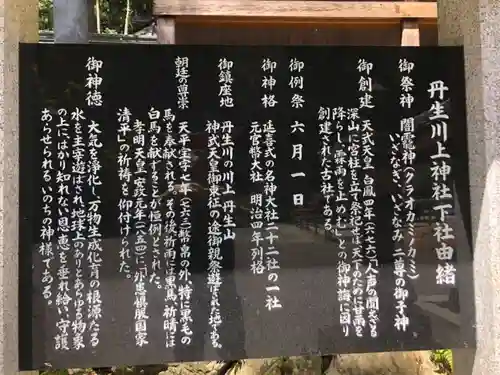 丹生川上神社下社由緒
御祭神 闇龗神(クラオカミノカミ)
いざなぎ、いざなみ 二尊の御子神
御創建 天武天皇、白鳳四年(六七六)「人声の聞えざる
深山に宮柱を立て祭祀せば、天下のために甘雨を
降らし霖雨を止めむ」との御神誨に因り
創建された古社である。
御例祭 六月一日
御神格 延喜式の名神大社二十二社の一社
元官幣大社 明治四年列格
御鎮座地 丹生川の川上 丹生山
神武天皇御東征の途御親祭遊ばされた地である。
朝廷の尊崇 天平宝字七年(七六三)幣帛の外、特に黒毛の
馬を奉献される。その後祈雨には黒馬、祈晴には
白馬を献ずることが恒例とされた。
孝明天皇、安政元年(一八五四)に「外患惧服国家
清平」の祈祷を仰付けられた。
御神徳 大気を浄化し、万物生成化育の根源たる
水を主宰遊ばされ、地球上のありとあらゆる物象
の上にはかり知れない恩恵を垂れ給い、守護
あらせられるいのちの神様である。